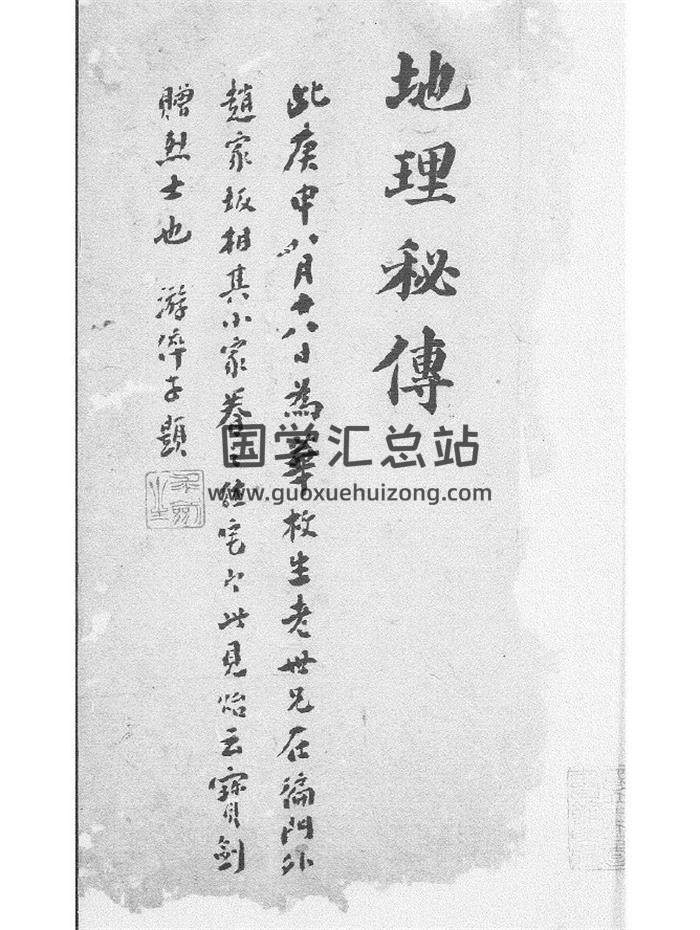 地理秘傳
此庚申八月十八日為華枚生老世兄在偏門外
趙家坂相其小家宅以此見貽云寶劍
贈烈士也 游子題
国学汇总站
www.guoxuehuizong.com